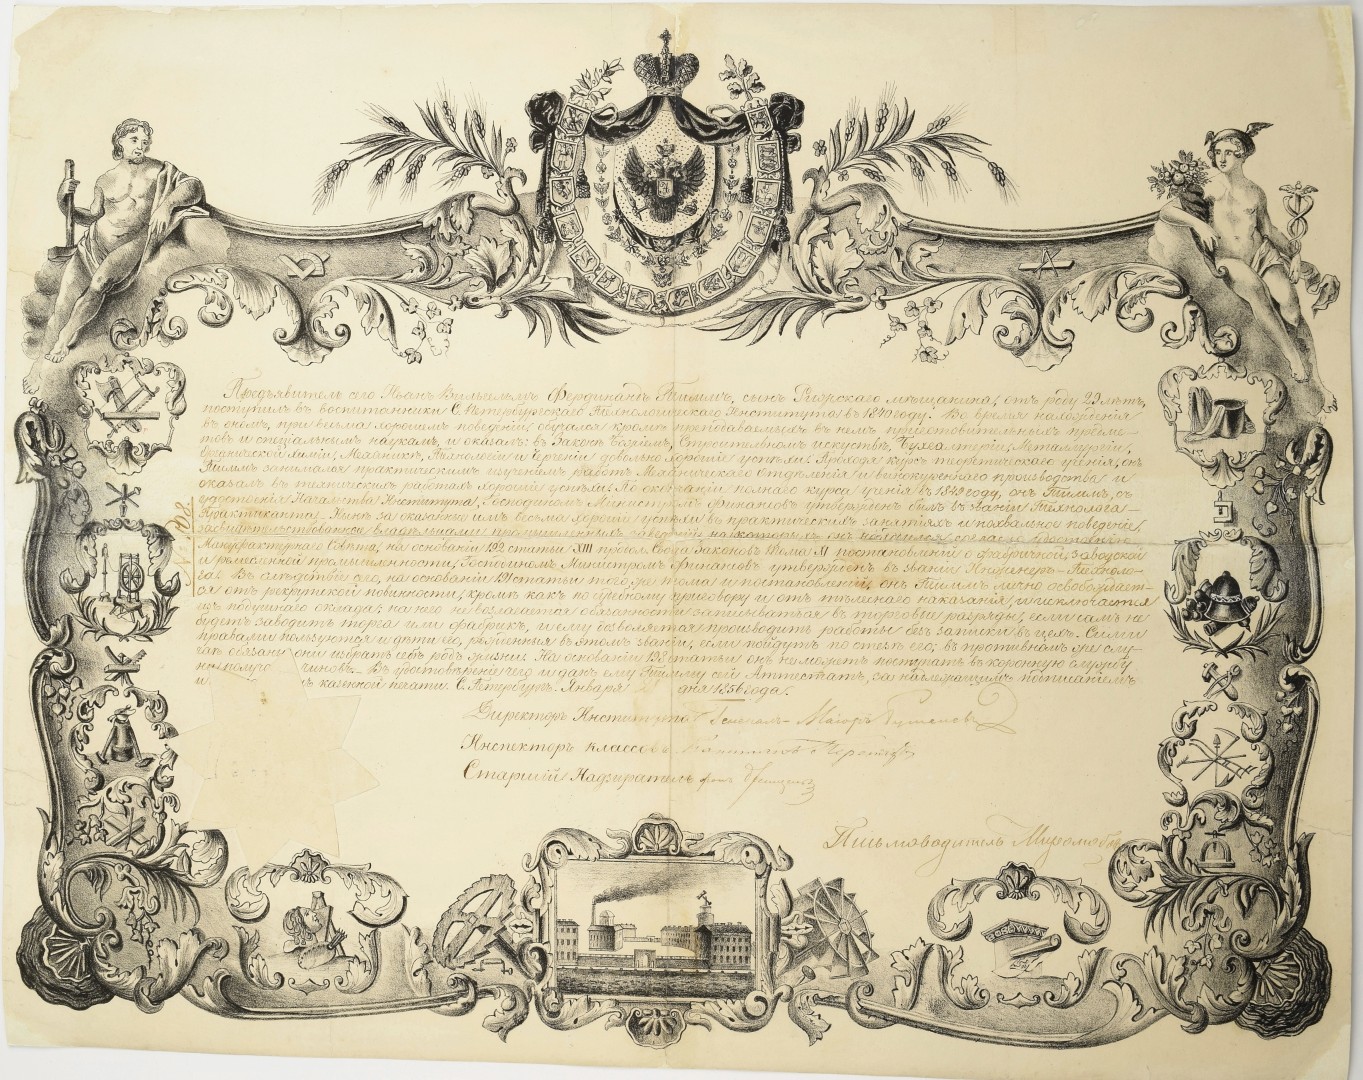 Предъявитель сего Иванъ Вильгельмъ Фердинандъ Тиммъ, сынъ Рижскаго мѣщанина, отъ роду 29 лѣтъ,
поступилъ въ воспитанники С. Петербургскаго Технологическаго Института въ 1840 году. Во время нахожденія
въ ономъ, при весьма хорошемъ поведеніи, обучался кромѣ преподаваемыхъ въ немъ приготовительныхъ предме-
товъ и спеціальнымъ наукамъ, и оказалъ: въ Законѣ Божіемъ, Строительномъ искуствѣ, Бухгалтеріи, Металлургіи,
Органической Химіи, Механикѣ, Технологіи и Черченіи довольно хорошіе успѣхи. Проходя курсъ теоретическаго ученія, онъ
Тиммъ занимался практическимъ изученіемъ работъ Механическаго Отдѣленія и винокуреннаго производства и
оказалъ въ техническихъ работахъ хорошіе успѣхи. По окончаніи полнаго курса ученія въ 1849 году, онъ Тиммъ, съ
удостоенія Начальства Института, Господиномъ Министромъ Финансовъ утвержденъ былъ въ званіи Технолога-
Практиканта. Нынѣ за оказанные имъ весьма хорошіе успѣхи въ практическихъ занятіяхъ и похвальное поведеніе,
засвидѣтельствованныя владѣльцами промышленныхъ заведеній на которыхъ онъ находился, согласно удостоенію
Мануфактурнаго Совѣта, на основаніи 192 статьи XIII продол. Свода Законовъ Тома XI постановленій о фабричной, заводской
и ремесленной промышленности, Господиномъ Министромъ Финансовъ утвержденъ въ званіи Инженеръ-Техноло-
га. Въ слѣдствіе сего, на основаніи статьи того же тома и постановленій, онъ Тиммъ лично освобождает-
ся отъ рекрутской повинности, кромѣ какъ по судебному приговору и отъ тѣлеснаго наказанія, и исключается
изъ подушнаго оклада; на него не возлагается обязанности записываться въ торговые разряды, если самъ не
будетъ заводить торга или фабрикъ, и ему дозволяется производить работы безъ записки въ цехъ. Сими
правами пользуются и дѣти его, рожденныя въ этомъ званіи, если пойдутъ по стезѣ его; въ противномъ же слу-
чаѣ обязаны они избрать себѣ родъ жизни. На основаніи 198 статьи онъ не можетъ поступать въ коронную службу
чиновъ. Въ удостовѣреніе чего и данъ ему Тимму сей Аттестатъ, за надлежащимъ подписаніемъ
и казенной печати. С. Петербургъ. Января дня 1856 года.
№ 198.
Директоръ Института Генералъ-Маіоръ
Инспекторъ классовъ
Старшій Надзиратель фонъ
Письмоводитель